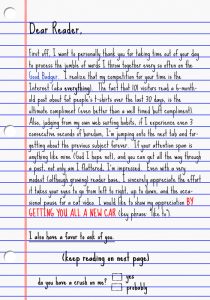 Dear Reader,
First off, I want to personally thank you for taking time out of your day
to process the jumble of words I throw together every so often on the
Good Badger. I realize that my competition for your time is the
Internet (aka everything). The fact that 101 visitors read a 6-month-
old post about fat people's t-shirts over the last 30 days, is the
ultimate compliment (even better than a well timed butt compliment).
Also, judging from my own web surfing habits, if I experience even 3
consecutive seconds of boredom, I'm jumping onto the next tab and for-
getting about the previous subject forever. If your attention span is
anything like mine (God I hope not), and you can get all the way through
a post, not only am I flattered, I'm impressed. Even with a very
modest (although growing) reader base, I sincerely appreciate the effort
it takes your eyes to go from left to right, up to down, and the occa-
sional pause for a cat video. I would like to show my appreciation BY
GETTING YOU ALL A NEW CAR (key phrase: "like to").
I also have a favor to ask of you.
(keep reading on next page)
do you have a crush on me?
yes
probably